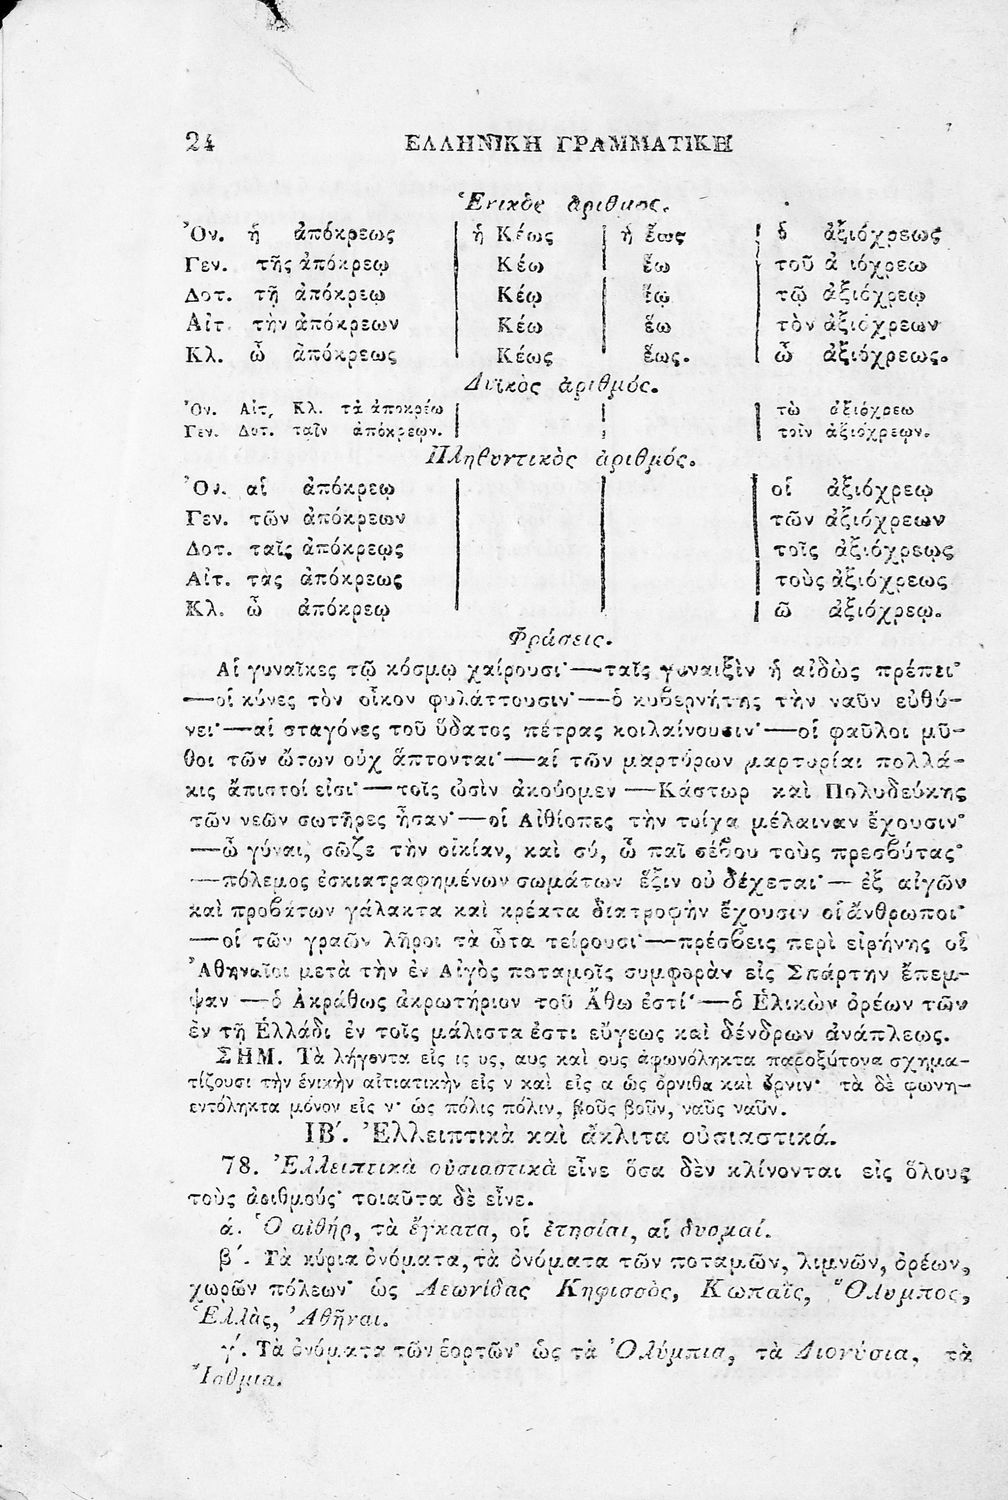 24 ΕΛΛΗΝΙΚΗ ΓΡΑΜΜΑΤΙΚΗ
Ἑνικὸς ἀριθμος.
Ὀν. ἡ ἀπόκρεως ἡ Κέως ἡ ἕως ὁ ἀξιόχρεως
Γεν. τῆς ἀπόκρεω Κέω ἕω τοῦ ἀ ιόχρεω
Δοτ. τῇ ἀπόκρεῳ Κέῳ ἕῳ τῷ ἀξιόχρεῳ
Αἰτ. τὴν ἀπόκρεων Κέω ἕω τὸν ἀξιόχρεων
Κλ. ὦ ἀπόκρεως Κέως ἕως. ὦ ἀξιόχρεως.
Δυϊκὸς ἀριθμός.
Ὀν. Αἰτ, Κλ. τὰ ἀποκρέω τὼ ἀξιόχρεω
Γεν. Δοτ. ταῖν ἀπόκρεῳν. τοῖν ἀξιόχρεῳν.
Πληθυντικὸς ἀριθμός.
Ὀν. αἱ ἀπόκρεῳ οἱ ἀξιόχρεῳ
Γεν. τῶν ἀπόκρεων τῶν ἀξιόχρεων
Δοτ. ταῖς ἀπόκρεῳς τοῖς ἀξιόχρεῳς
Αἰτ. τὰς ἀπόκρεως τοὺς ἀξιόχρεως
Κλ. ὦ ἀπόκρεῳ ὦ ἀξιόχρεῳ.
Φράσεις.
Αἱ γυναῖκες τῷ κόσμῳ χαίρουσι·—ταῖς γυναιξὶν ἡ αἰδὼς πρέπει·
—οἱ κύνες τὸν οἶκον φυλάττουσιν·—ὁ κυβερνήτης τὴν ναῦν εὐθύ-
νει·—αἱ σταγόνες τοῦ ὕδατος πέτρας κοιλαίνουσιν·—οἱ φαῦλοι μῦ-
θοι τῶν ὤτων οὐχ ἅπτονται·—αἱ τῶν μαρτύρων μαρτυρίαι πολλά-
κις ἄπιστοί εἰσι·—τοῖς ὠσὶν ἀκούομεν—Κάστωρ καὶ Πολυδεύκης
τῶν νεῶν σωτῆρες ἦσαν·—οἱ Αἰθίοπες τὴν τρίχα μέλαιναν ἔχουσιν·
—ὦ γύναι, σῶζε τὴν οἰκίαν, καὶ σύ, ὦ παῖ σέβου τοὺς πρεσβύτας·
—πόλεμος ἐσκιατραφημένων σωμάτων ἕξιν οὐ δέχεται·— ἐξ αἰγῶν
καὶ προβάτων γάλακτα καὶ κρέατα διατροφὴν ἔχουσιν οἱ ἄνθρωποι·
—οἱ τῶν γραῶν λῆροι τὰ ὦτα τείρουσι·—πρέσβεις περὶ εἰρήνης οἱ
Ἀθηναῖοι μετὰ τὴν ἐν Αἰγὸς ποταμοῖς συμφορὰν εἰς Σπάρτην ἔπεμ-
ψαν —ὁ Ἀκράθως ἀκρωτήριον τοῦ Ἄθω ἐστί·—ὁ Ἑλικὼν ὀρέων τῶν
ἐν τῇ Ἑλλάδι ἐν τοῖς μάλιστα ἐστι εὔγεως καὶ δένδρων ἀνάπλεως.
ΣΗΜ. Τὰ λήγοντα εἰς ις υς, αυς καὶ ους ἀφωνόληκτα παροξύτονα σχημα-
τίζουσι τὴν ἑνικὴν αἰτιατικὴν εἰς ν καὶ εἰς α ὡς ὄρνιθα καὶ ὄρνιν· τὰ δὲ φωνη-
εντόληκτα μόνον εἰς ν· ὡς πόλις πόλιν, βοῦς βοῦν, ναῦς ναῦν.
ΙΒ΄. Ἐλλειπτικὰ καὶ ἄκλιτα οὐσιαστικά.
78. Ἐλλειπτικὰ οὐσιαστικὰ εἶνε ὅσα δὲν κλίνονται εἰς ὅλους
τοὺς ἀριθμούς· τοιαῦτα δὲ εἶνε.
ά. Ὁ αἰθήρ, τὰ ἔγκατα, οἱ ἐτησίαι, αἱ δυσμαί.
β΄. Τὰ κύρια ὀνόματα, τὰ ὀνόματα τῶν ποταμῶν, λιμνῶν, ὀρέων,
χωρῶν πόλεων· ὡς Λεωνίδας Κηφισσὸς, Κωπαῒς, Ὄλυμπος,
Ἑλλὰς, Ἀθῆναι.
γ΄. Τὰ ὀνόματα τῶν ἑορτῶν· ὡς τὰ Ὀλύμπια, τὰ Διονύσια, τὰ
Ἴσθμια.